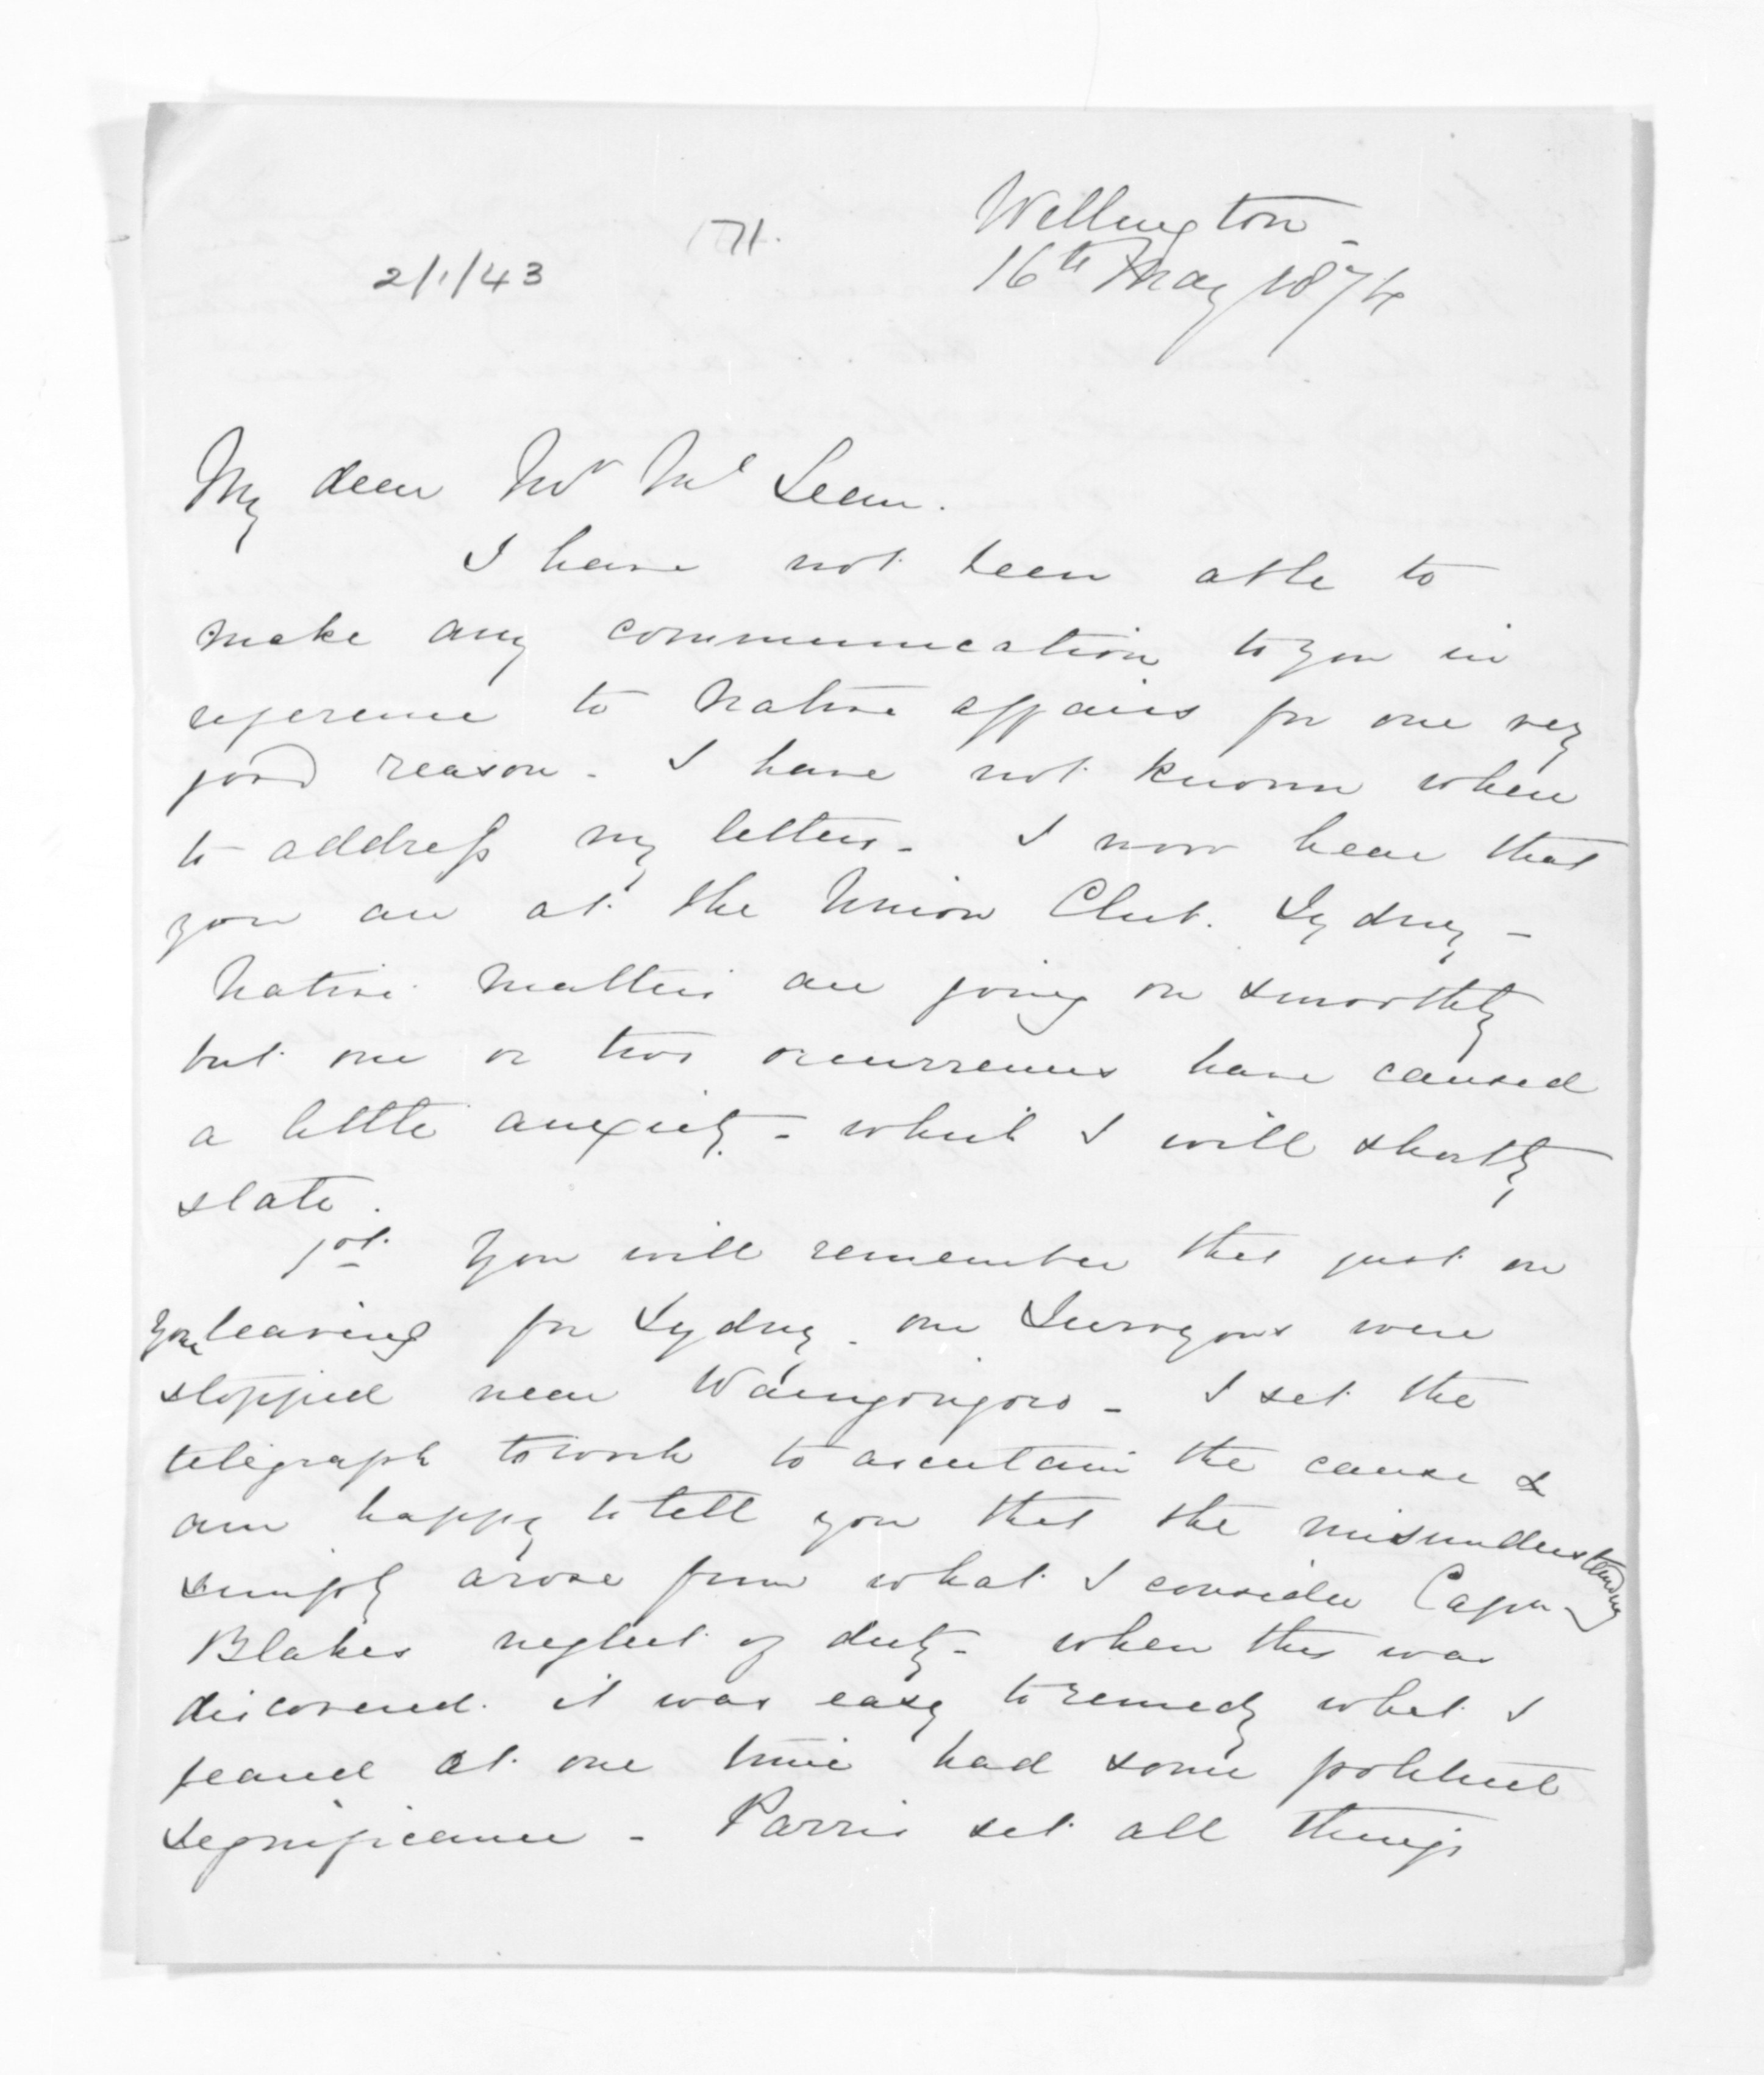 171.
Wellington -
2/1/43
16th May 1874
My dear Mr McLean.
I have not been able to
make any communication to you in
reference to Native affairs for one very
good reason - I have not known where
to address my letters - I now hear that
you are at the Union Club. Sydney -
Native matters are going on smoothly
but one or two occurrences have caused
a little anxiety - which I will shortly
state.
1st You will remember that just on
your leaving for Sydney - our Surveyors were
stopped near Waingongoro - I set the
telegraph to work to ascertain the cause &
am happy to tell you that the misunderstanding
simply arose from what I consider Capn
Blakes neglect of duty - when this was
discovered it was easy to remedy what I
feared at one time had some political
significance - Parris set all things